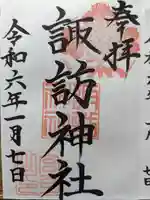 奉拝
諏訪神社
令和六年一月七日